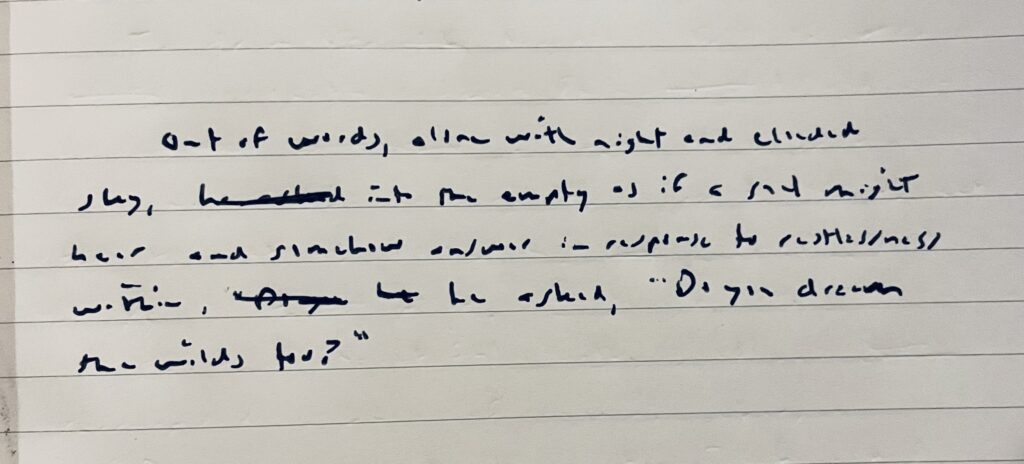 Out of words, alone with night and clouded
sky, he asked into the empty as if a god might
hear and somehow answer in response to restlessness
within, "Do you he he asked, "Do you dream
the wilds too?"